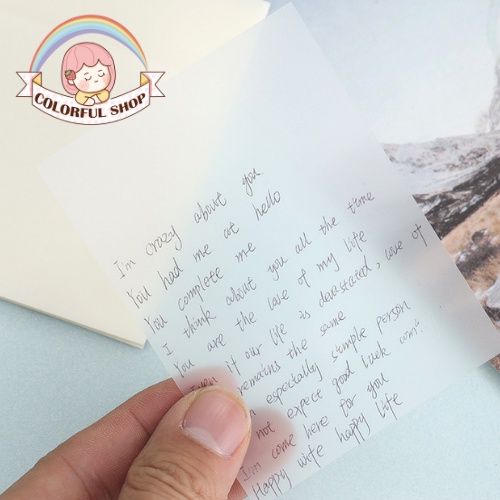 COLORFUL SHOP
I'm crazy about you
You had me at hello
You complete me
I think about you all the time
You are the love of my life
Even if our life is devastated, love of
remains the same
especially simple person
not expect good luck
I'm come here for you
Happy wife happy life